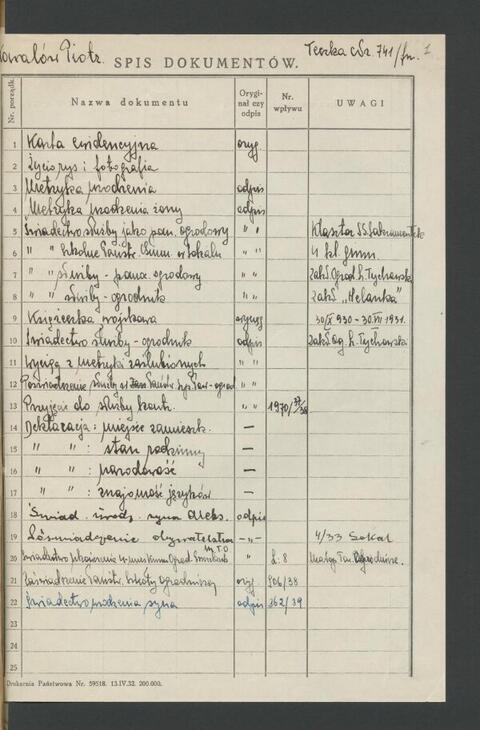 Kowalów Piotr. Teczka Nr. 741/fn. 1
SPIS DOKUMENTÓW.
Nr. porządk. Nazwa dokumentu Orygi-nał czy odpis Nr. wpływu UWAGI
1 Karta ewidencyjna oryg
2 Życiorys i fotografia
3 Metryka urodzenia odpis
4 Metryka urodzenia żony odpis
5 Świadectwo służby jako pom. ogrodowy " " Klasztor SS. Sakramentek
6 " " Szkolne Państw. Gimn. w Sokalu " " 4 kl. gimn.
7 " " służby - ogrodowy " " Zakł. Ogrod. L. Tychowski
8 " " służby - ogrodnik " " Zakł. "Helenka"
9 Książeczka wojskowa oryg 30/X 930 - 30/VII 1931.
10 Świadectwo służby - ogrodnik odpis Zakł. og. L. Tychowski
11 Wyciąg z metryki zaślubionych " "
12 Poświadczenie służby w " "
13 Przyjęcie do służby kontr. " " 1970/37/38
14 Deklaracja: miejsce zamieszk. —
15 " " : stan rodzinny —
16 " " : narodowość —
17 " " : znajomość języków —
18 Świad. urodz. syna Aleks. odpis
19 Poświadczenie obywatelstwa —"— 4/33 Sokal
20 Świadectwo Ogrod. " L. 8 Małop. Tow. Ogrodnicze.
21 Zaświadczenie Państw. Szkoły Ogrodniczej oryg. 406/38
22 Świadectwo urodzenia syna odpis 362/39
23
24
25
Drukarnia Państwowa Nr. 59518. 13.IV.32. 200.000.